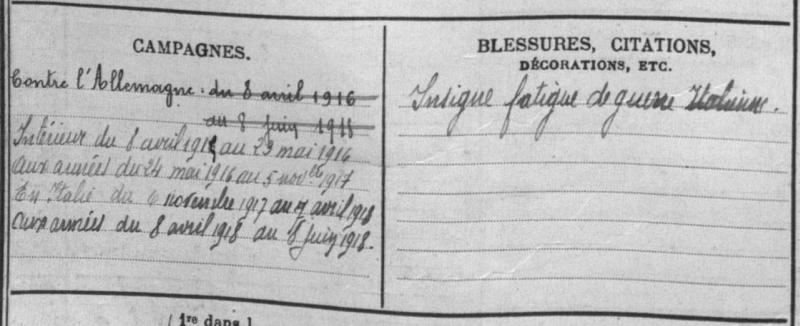 CAMPAGNES.
Contre l'Allemagne. du 8 avril 1916
au 8 juin 1918
Intérieur du 8 avril 1916 au 23 mai 1916
aux armées du 24 mai 1916 au 5 novbre 1917
En Italie du 6 novembre 1917 au 7 avril 1918
aux armées du 8 avril 1918 au 8 juin 1918.
BLESSURES, CITATIONS,
DÉCORATIONS, ETC.
Insigne fatigue de guerre Italienne.
(1re dans)